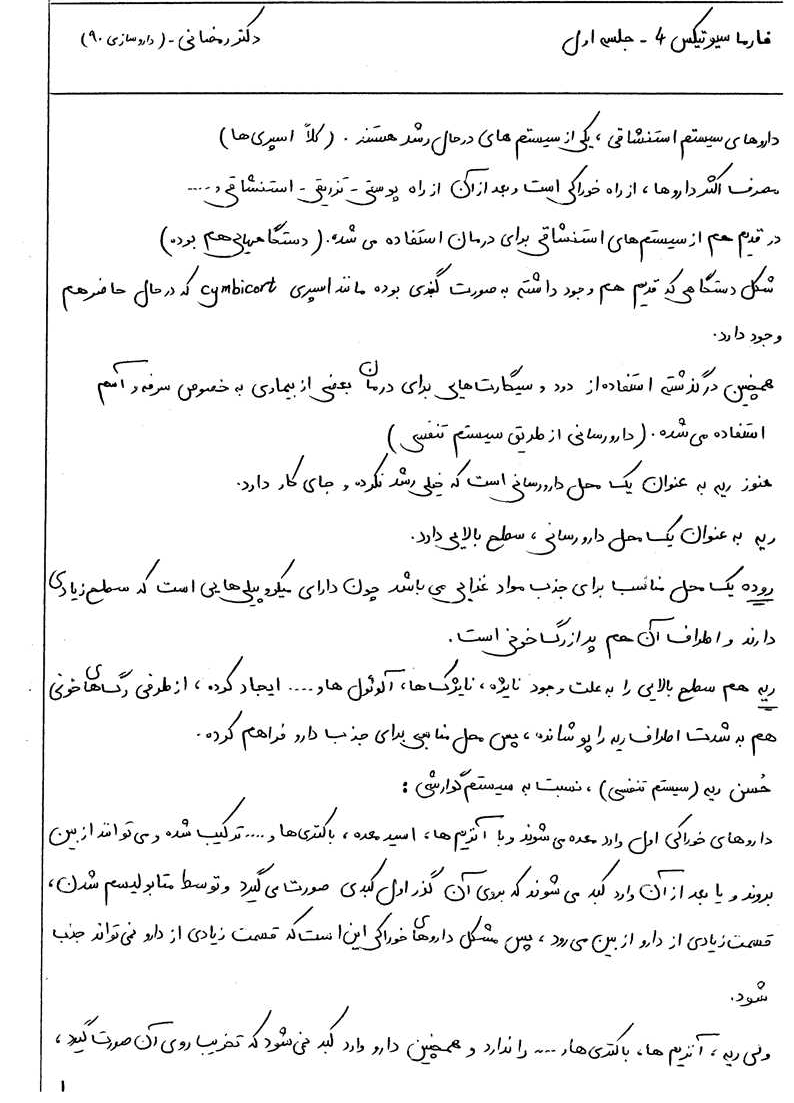 فارماسیوتیکس 4 - جلسه اول
دکتر رمضانی - (داروسازی ۹۰)
داروهای سیستم استنشاقی ، یکی از سیستم های درحال رشد هستند . (کلاً اسپری ها)
مصرف اکثر داروها ، از راه خوراکی است و بعد از آن از راه پوستی - تزریقی - استنشاقی و ....
در قدیم هم از سیستم های استنشاقی برای درمان استفاده می شده . (دستگاههایی هم بوده)
شکل دستگاهی که قدیم هم وجود داشته به صورت گنبدی بوده مانند اسپری cymbicort که در حال حاضر هم
وجود دارد.
همچنین در گذشته استفاده از دود و سیگارت هایی برای درمان بعضی از بیماری به خصوص سرفه و آسم
استفاده می شده . (دارورسانی از طریق سیستم تنفسی)
هنوز ریه به عنوان یک محل دارورسانی است که خیلی رشد نکرده و جای کار دارد.
ریه به عنوان یک محل دارورسانی ، سطح بالایی دارد.
روده یک محل مناسب برای جذب مواد غذایی می باشد چون دارای میکروویلی هایی است که سطح زیادی
دارند و اطراف آن هم پر از رگ خونی است .
ریه هم سطح بالایی را به علت وجود نایژه ، نایژک ها ، آلوئول ها و .... ایجاد کرده ، از طرفی رگ های خونی
هم به شدت اطراف ریه را پوشانده ، پس محل مناسبی برای جذب دارو فراهم کرده .
حُسن ریه (سیستم تنفسی) ، نسبت به سیستم گوارشی :
داروهای خوراکی اول وارد معده می شوند و با آنزیم ها ، اسید معده ، باکتری ها و .... ترکیب شده و می توانند از بین
بروند و یا بعد از آن وارد کبد می شوند که بروی آن گذر اول کبدی صورت می گیرد و توسط متابولیسم شدن ،
قسمت زیادی از دارو از بین می رود ، پس مشکل داروهای خوراکی این است که قسمت زیادی از دارو نمی تواند جذب
شود.
ولی ریه ، آنزیم ها ، باکتری ها و .... را ندارد و همچنین دارو وارد کبد نمی شود که تخریب روی آن صورت گیرد ،
۱